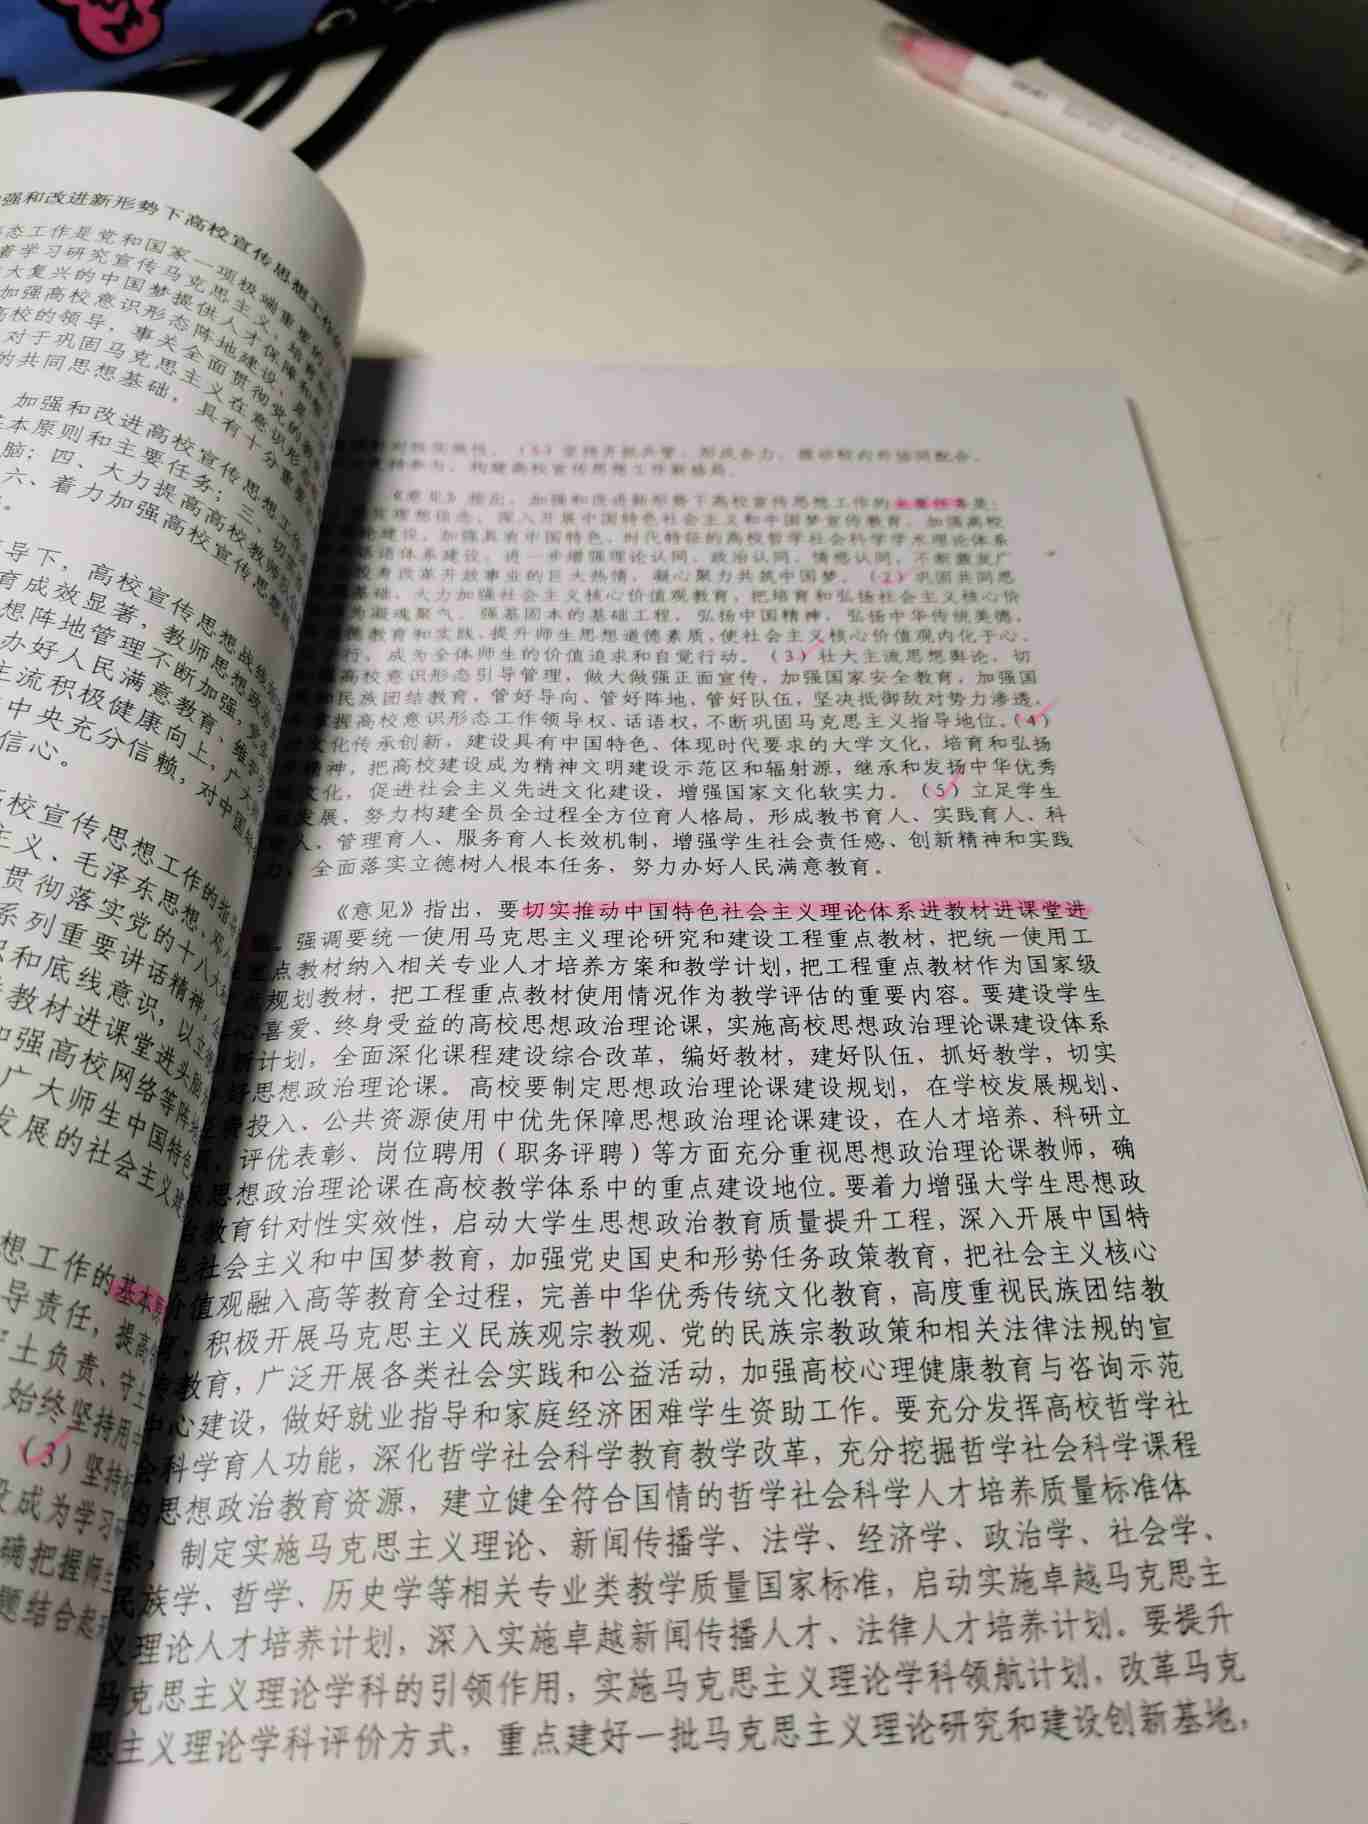 强和改进新形势下高校宣传思想工作的
态工作是党和国家一项极端重要的
着学习研究宣传马克思主义、培育
大复兴的中国梦提供人才保障和智
加强高校意识形态阵地建设，是
高校的领导，事关全面贯彻党的教
对于巩固马克思主义在意识形
的共同思想基础，具有十分重
加强和改进高校宣传思想工
本原则和主要任务；三、切实
脑；四、大力提高高校教师队
六、着力加强高校宣传思想
导下，高校宣传思想战线
育成效显著，教师思想政治
想阵地管理不断加强，
办好人民满意教育、维
主流积极健康向上，广大
中央充分信赖，对中国
信心。
高校宣传思想工作的指
主义、毛泽东思想、邓
贯彻落实党的十八大
系列重要讲话精神，
识和底线意识，以立
教材进课堂进头脑
加强高校网络等阵
广大师生中国特色
发展的社会主义建
想工作的基本原
导责任，提高
守土负责、守土
始终坚持用中
（3）坚持
成为学习
确把握师生
题结合起
对性实效性。（5）坚持齐抓共管，形成合力，推动校内外协同配合，
支持参与，构建高校宣传思想工作新格局。
《意见》指出，加强和改进新形势下高校宣传思想工作的主要任务是：
理想信念，深入开展中国特色社会主义和中国梦宣传教育，加强高校
论建设，加强具有中国特色、时代特征的高校哲学社会科学学术理论体系
话语体系建设，进一步增强理论认同、政治认同、情感认同，不断激发广
投身改革开放事业的巨大热情，凝心聚力共筑中国梦。（2）巩固共同思
基础，大力加强社会主义核心价值观教育，把培育和弘扬社会主义核心价
为凝魂聚气、强基固本的基础工程，弘扬中国精神，弘扬中华传统美德，
德教育和实践，提升师生思想道德素质，使社会主义核心价值观内化于心、
行，成为全体师生的价值追求和自觉行动。（3）壮大主流思想舆论，切
高校意识形态引导管理，做大做强正面宣传，加强国家安全教育，加强国
和民族团结教育，管好导向、管好阵地、管好队伍，坚决抵御敌对势力渗透，
掌握高校意识形态工作领导权、话语权，不断巩固马克思主义指导地位。（4）
文化传承创新，建设具有中国特色、体现时代要求的大学文化，培育和弘扬
精神，把高校建设成为精神文明建设示范区和辐射源，继承和发扬中华优秀
文化，促进社会主义先进文化建设，增强国家文化软实力。（5）立足学生
发展，努力构建全员全过程全方位育人格局，形成教书育人、实践育人、科
人、管理育人、服务育人长效机制，增强学生社会责任感、创新精神和实践
力，全面落实立德树人根本任务，努力办好人民满意教育。
《意见》指出，要切实推动中国特色社会主义理论体系进教材进课堂进
。强调要统一使用马克思主义理论研究和建设工程重点教材，把统一使用工
重点教材纳入相关专业人才培养方案和教学计划，把工程重点教材作为国家级
规划教材，把工程重点教材使用情况作为教学评估的重要内容。要建设学生
心喜爱、终身受益的高校思想政治理论课，实施高校思想政治理论课建设体系
新计划，全面深化课程建设综合改革，编好教材，建好队伍，抓好教学，切实
好思想政治理论课。高校要制定思想政治理论课建设规划，在学校发展规划、
投入、公共资源使用中优先保障思想政治理论课建设，在人才培养、科研立
、评优表彰、岗位聘用（职务评聘）等方面充分重视思想政治理论课教师，确
思想政治理论课在高校教学体系中的重点建设地位。要着力增强大学生思想政
治教育针对性实效性，启动大学生思想政治教育质量提升工程，深入开展中国特
色社会主义和中国梦教育，加强党史国史和形势任务政策教育，把社会主义核心
价值观融入高等教育全过程，完善中华优秀传统文化教育，高度重视民族团结教
育，积极开展马克思主义民族观宗教观、党的民族宗教政策和相关法律法规的宣
传教育，广泛开展各类社会实践和公益活动，加强高校心理健康教育与咨询示范
中心建设，做好就业指导和家庭经济困难学生资助工作。要充分发挥高校哲学社
会科学育人功能，深化哲学社会科学教育教学改革，充分挖掘哲学社会科学课程
的思想政治教育资源，建立健全符合国情的哲学社会科学人才培养质量标准体
系，制定实施马克思主义理论、新闻传播学、法学、经济学、政治学、社会学、
民族学、哲学、历史学等相关专业类教学质量国家标准，启动实施卓越马克思主
义理论人才培养计划，深入实施卓越新闻传播人才、法律人才培养计划。要提升
马克思主义理论学科的引领作用，实施马克思主义理论学科领航计划，改革马克
思主义理论学科评价方式，重点建好一批马克思主义理论研究和建设创新基地，